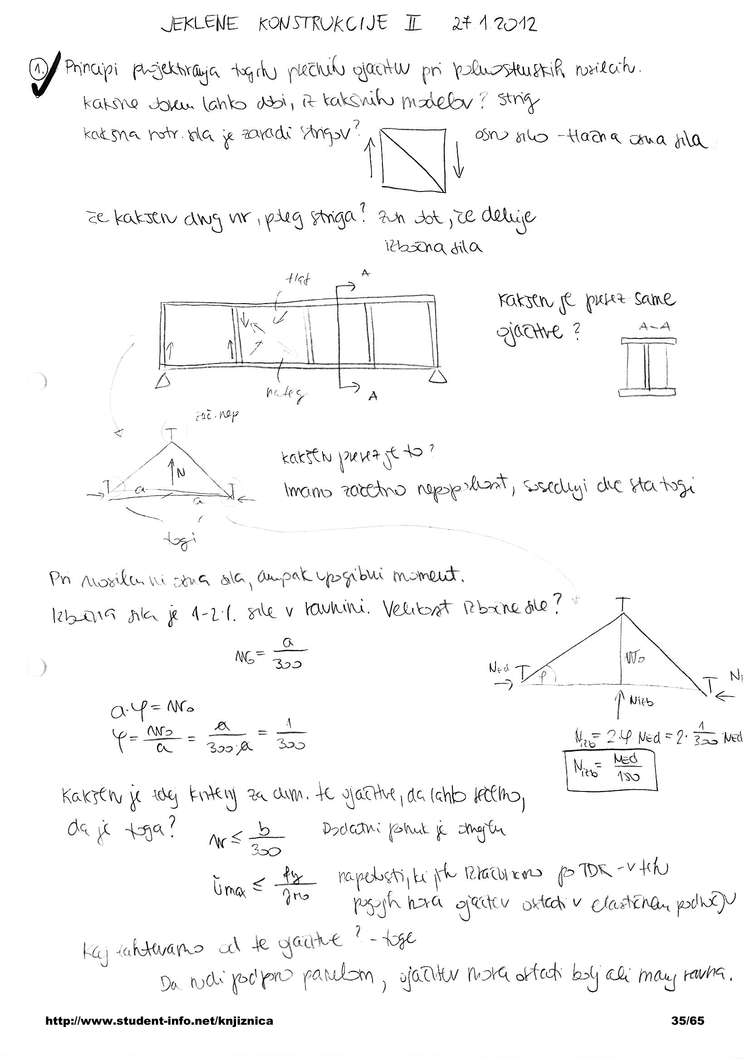 JEKLENE KONSTRUKCIJE II 27 1 2012
1. Principi projektiranja togih prečnih ojačitev pri polnostenskih nosilcih.
kakšne lahko dobi, iz kakšnih modelov? strig
kakšna notr. sila je zaradi strigov? osno silo - tlačna osna sila
če kakšen drug vpliv, poleg striga? zun deluje
izbočna sila
tlak A
Kakšen je prerez same
ojačitve? A-A
nateg A
zač. nep
T
N
T a a T
togi
kakšen prerez je to?
Imamo začetno nepopolnost, sosednji dve sta togi
Pri nosilcu ni osna sila, ampak upogibni moment.
Izbočna sila je 1-2% sile v ravnini. Velikost izbočne sile?
w0 = a/300
T
NEd T φ w0 T
Nizb
a·φ = w0
φ = w0/a = a/300·a = 1/300
Nizb = 2·φ NEd = 2· 1/300 NEd
Nizb = NEd/150
Kakšen je tedaj kriterij za dim. te ojačitve, da lahko rečemo,
da je toga? w ≤ b/300 Dodatni pomik je omejen
σmax ≤ fy/γM0 napetosti, ki jih izračunamo po TDR - v teh
pogojih mora ojačitev ostati v elastičnem področju
Kaj zahtevamo od te ojačitve? - toge
Da nudi podporo panelom, ojačitev mora ostati bolj ali manj ravna.
http://www.student-info.net/knjiznica 35/65